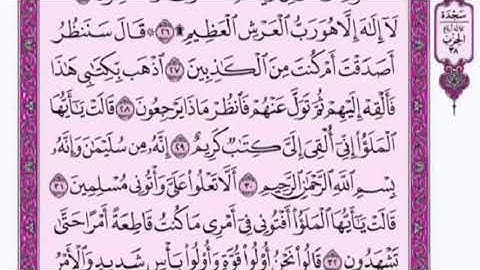 لَآ إِلَٰهَ إِلَّا هُوَ رَبُّ ٱلْعَرْشِ ٱلْعَظِيمِ ۩ ٢٦ ۞ قَالَ سَنَنظُرُ
أَصَدَقْتَ أَمْ كُنتَ مِنَ ٱلْكَٰذِبِينَ ٢٧ ٱذْهَب بِّكِتَٰبِي هَٰذَا
فَأَلْقِهْ إِلَيْهِمْ ثُمَّ تَوَلَّ عَنْهُمْ فَٱنظُرْ مَاذَا يَرْجِعُونَ ٢٨ قَالَتْ يَٰٓأَيُّهَا
ٱلْمَلَؤُا۟ إِنِّىٓ أُلْقِىَ إِلَىَّ كِتَٰبٌ كَرِيمٌ ٢٩ إِنَّهُۥ مِن سُلَيْمَٰنَ وَإِنَّهُۥ
بِسْمِ ٱللَّهِ ٱلرَّحْمَٰنِ ٱلرَّحِيمِ ٣٠ أَلَّا تَعْلُوا۟ عَلَىَّ وَأْتُونِى مُسْلِمِينَ ٣١
قَالَتْ يَٰٓأَيُّهَا ٱلْمَلَؤُا۟ أَفْتُونِى فِىٓ أَمْرِى مَا كُنتُ قَاطِعَةً أَمْرًا حَتَّىٰ
تَشْهَدُونِ ٣٢ قَالُوا۟ نَحْنُ أُو۟لُوا۟ قُوَّةٍ وَأُو۟لُوا۟ بَأْسٍ شَدِيدٍ وَٱلْأَمْرُ
سَجْدَة
الحزب
٣٨